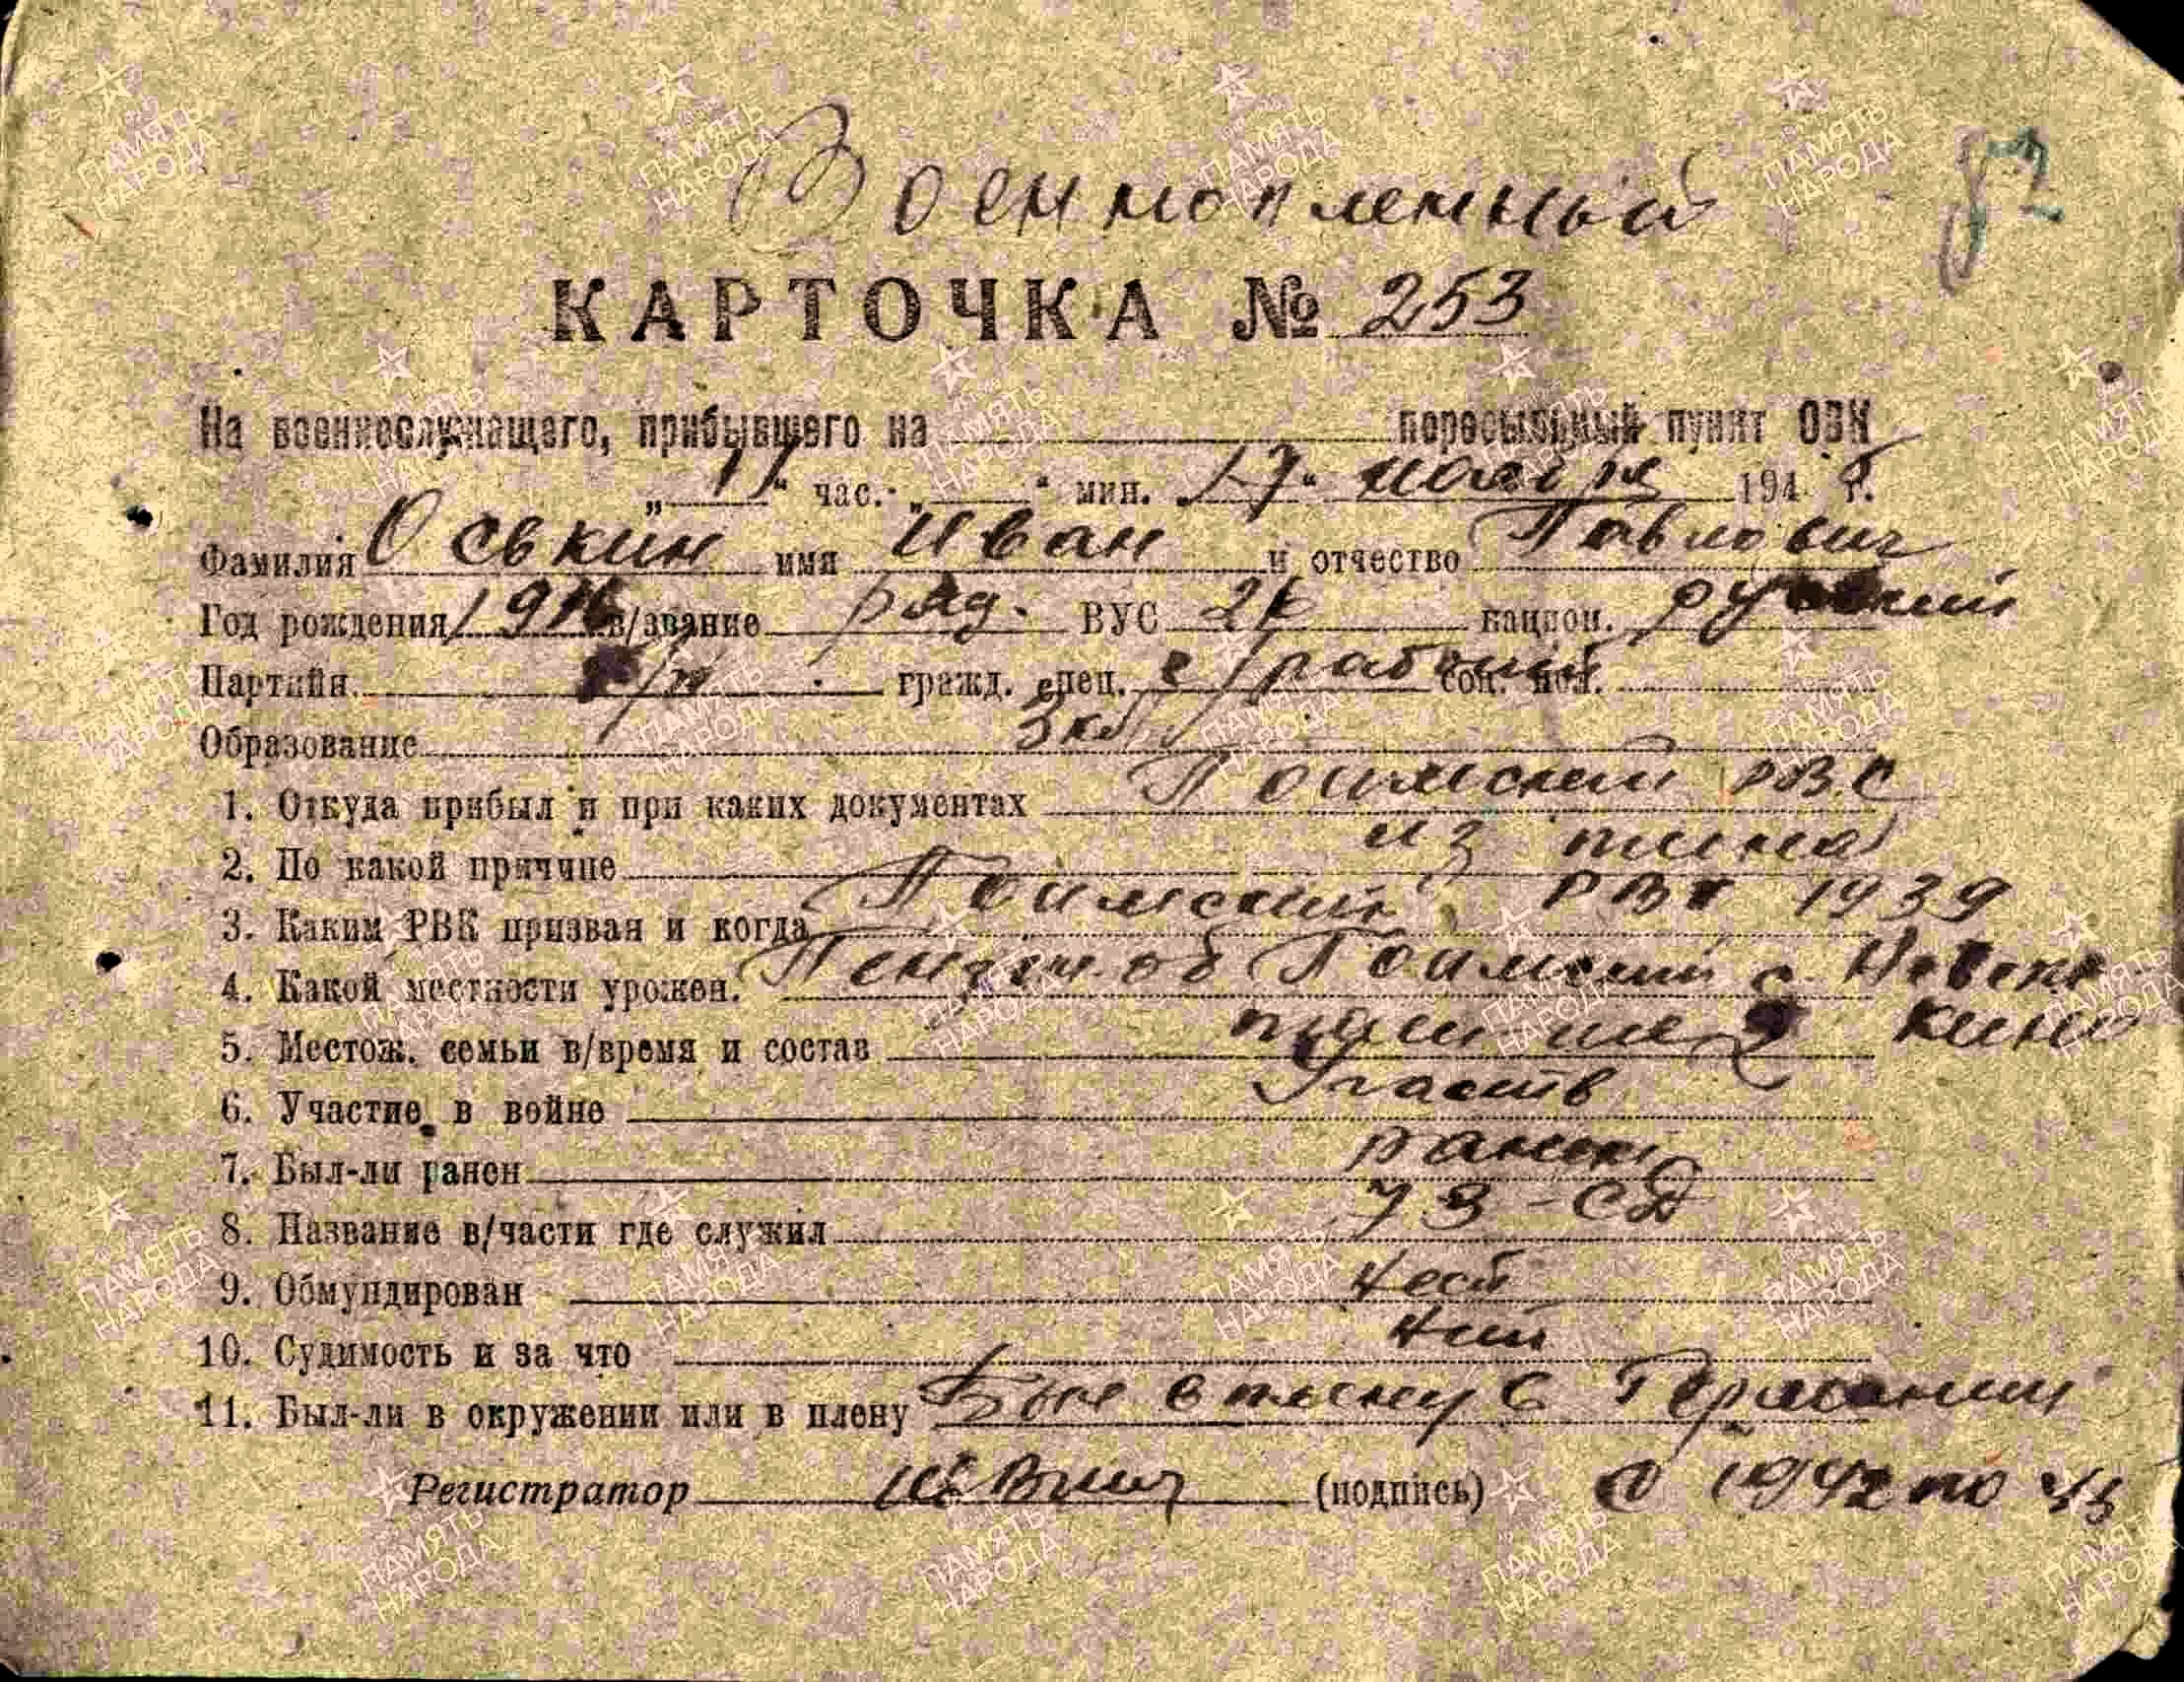 Военнопленный
82
КАРТОЧКА № 253
На военнослужащего, прибывшего на пересыльный пункт ОВК
„ 11 “ час. „ “ мин. „ 17 “ ноября 194 5 г.
Фамилия Оськин имя Иван и отчество Павлович
Год рождения в/звание ряд. ВУС национ. русский
Партийн. б/п гражд. спец. рабочий соц. пол.
Образование 3 кл
1. Откуда прибыл и при каких документах Поимский РВК
2. По какой причине из плена
3. Каким РВК призван и когда Поимский РВК 1939
4. Какой местности урожен. Пензен. об Поимский с. Невежкино
5. Местож. семьи в/время и состав
6. Участие в войне Участв
7. Был-ли ранен ранен
8. Название в/части где служил 73 - СД
9. Обмундирован
10. Судимость и за что нет
11. Был-ли в окружении или в плену Был в плену в Германии
с 1942 по 45
Регистратор (подпись)
ПАМЯТЬ НАРОДА